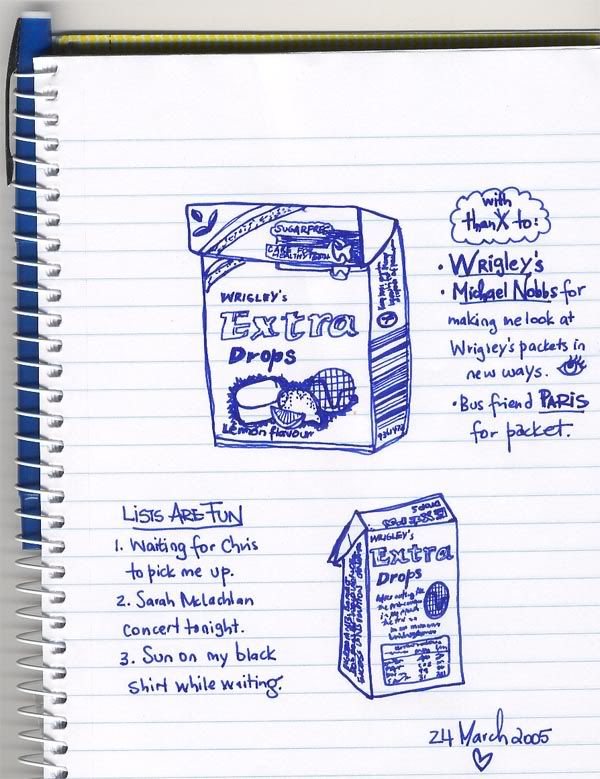 with
thanX to:
• Wrigley's
• Michael Nobbs for
making me look at
Wrigley's packets in
new ways.
• Bus friend PARIS
for packet.
SUGARFREE
CARE FOR
HEALTHY TEETH
WRIGLEY'S
Extra
Drops
Lemon flavour
LISTS ARE FUN
1. Waiting for Chris
to pick me up.
2. Sarah McLachlan
concert tonight.
3. Sun on my black
shirt while waiting.
DROPS
WRIGLEY'S
Extra
Drops
24 March 2005